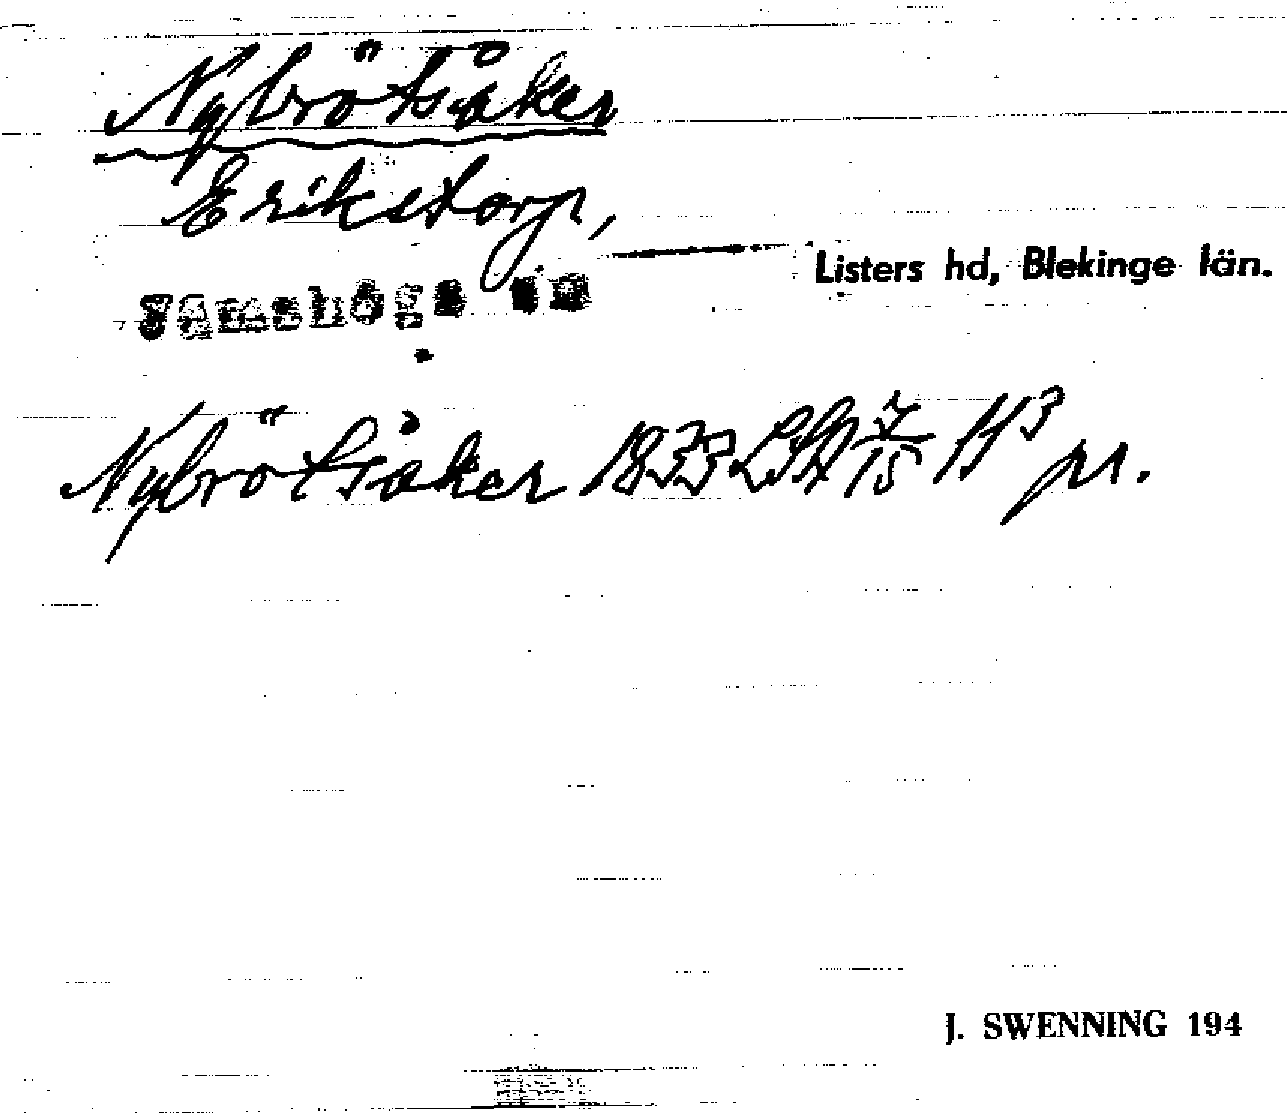 Nybrötsåker
Erikstorp,
Jämshögs sn Listers hd, Blekinge län.
Nybrötsåker 1833 LSA 7/15 H3 pr.
J. SWENNING 194